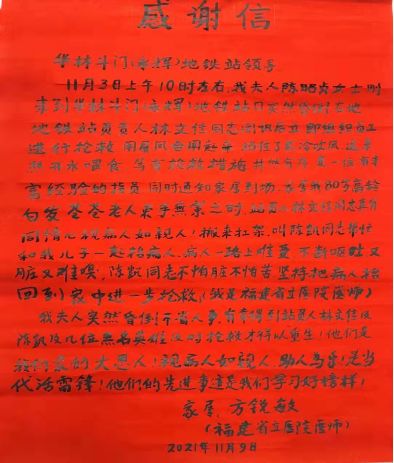 感谢信
华林斗门(永辉)地铁站领导
11月3日上午10时左右,我夫人陈昭贞女士刚
来到华林斗门(永辉)地铁站口突然昏倒在地
地铁站员林文佳同志闻讯后立即组织员工
进行抢救 用屏风合围起来 挡住了寒冷吹风 送来
热开水喂食 等有抢救措施
富经验的指员 同时通知家属到场 80万高龄
白发苍苍老人束手无策之时 站员林文佳同志
同情心 视病人如亲人!搬来扛架 叫陈凯同志帮忙
和我儿子一起抬病人 病人一路上难受 不断呕吐又
脏又难 陈凯同志不怕脏不怕苦 坚持把病人抬
回到家中进一步抢救(我是福建省立医院医师)
我夫人突然昏倒不省人事,有幸得到站员林文佳及
陈凯及几位无名英雄及时抢救才得以重生!他们是
我们家的大恩人!视病人如亲人,助人为乐!是当
代活雷锋!他们的先进事迹是我们学习好榜样!
家属 方锐敏
(福建省立医院医师)
2021年11月9日